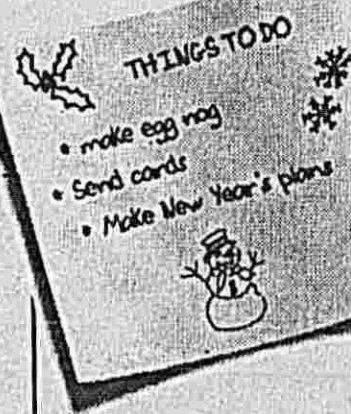 THINGS TO DO
• make egg nog
• Send cards
• Make New Year's plans